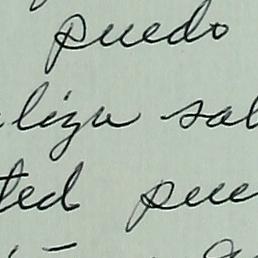 puedo
liza sal
ted pue